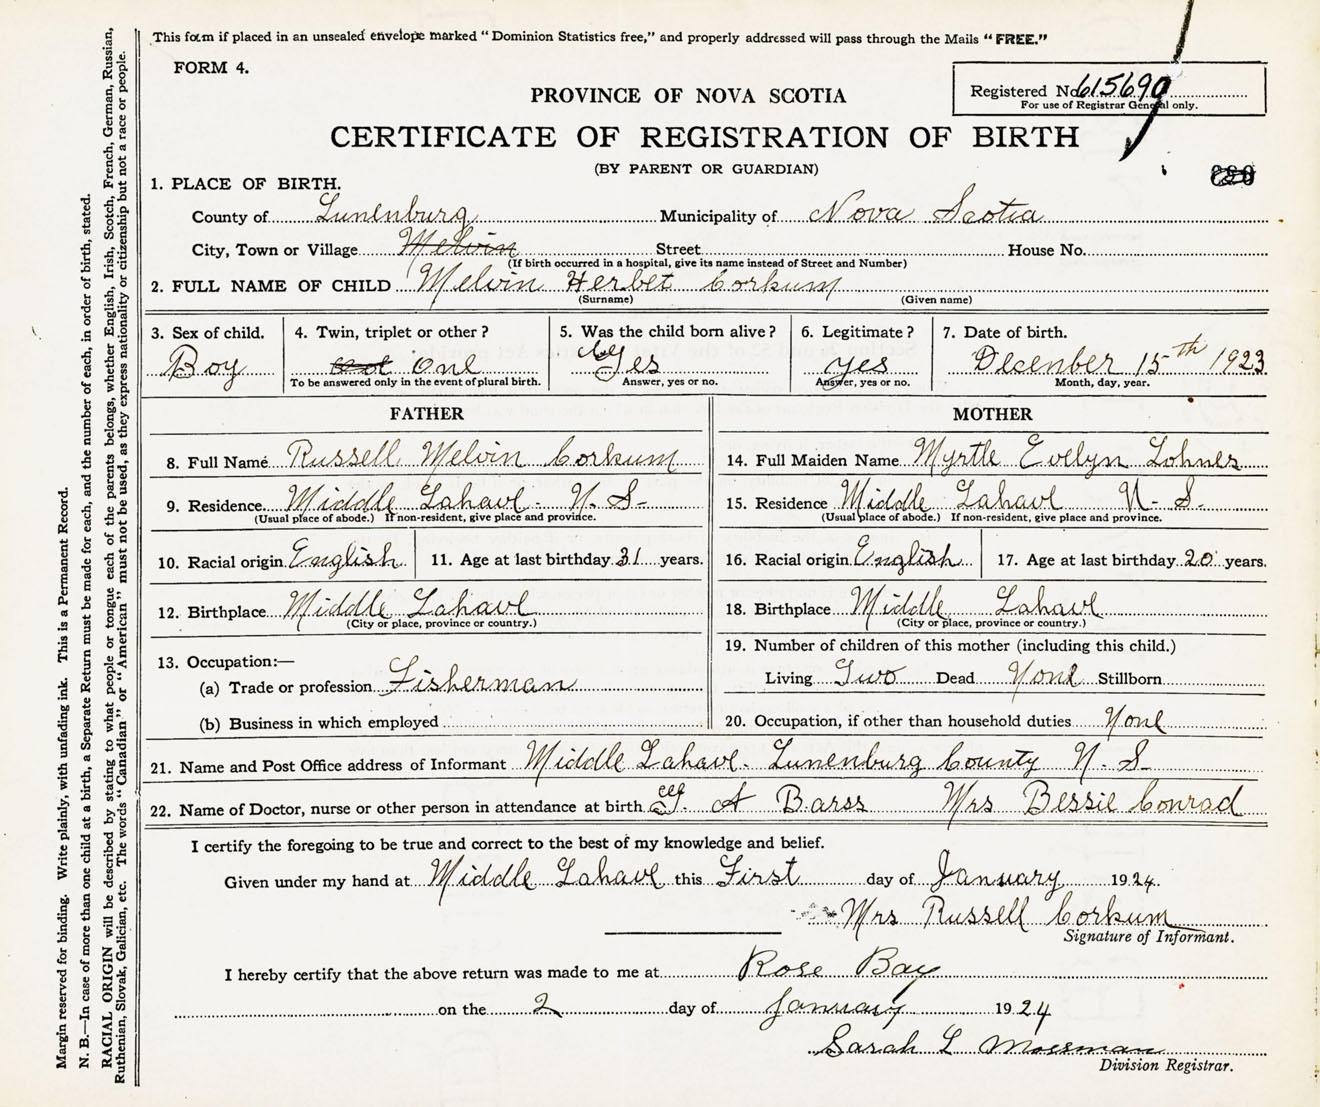 This form if placed in an unsealed envelope marked “Dominion Statistics free,” and properly addressed will pass through the Mails “FREE.”
FORM 4.
Registered No. 615690
For use of Registrar General only.
PROVINCE OF NOVA SCOTIA
CERTIFICATE OF REGISTRATION OF BIRTH
(BY PARENT OR GUARDIAN)
1. PLACE OF BIRTH.
County of Lunenburg Municipality of Nova Scotia
City, Town or Village Melvin Street House No.
(If birth occurred in a hospital, give its name instead of Street and Number)
2. FULL NAME OF CHILD Melvin Herbet Corkum
(Surname) (Given name)
3. Sex of child. 4. Twin, triplet or other? 5. Was the child born alive? 6. Legitimate? 7. Date of birth.
Boy One Yes yes December 15th 1923
To be answered only in the event of plural birth. Answer, yes or no. Answer, yes or no. Month, day, year.
FATHER MOTHER
8. Full Name Russell Melvin Corkum 14. Full Maiden Name Myrtle Evelyn Lohnes
9. Residence Middle Lahave - N. S- 15. Residence Middle Lahave N- S.
(Usual place of abode.) If non-resident, give place and province. (Usual place of abode.) If non-resident, give place and province.
10. Racial origin English 11. Age at last birthday 31 years. 16. Racial origin English 17. Age at last birthday 20 years.
12. Birthplace Middle Lahave 18. Birthplace Middle Lahave
(City or place, province or country.) (City or place, province or country.)
13. Occupation:— 19. Number of children of this mother (including this child.)
(a) Trade or profession Fisherman Living Two Dead None Stillborn
(b) Business in which employed 20. Occupation, if other than household duties None
21. Name and Post Office address of Informant Middle Lahave. Lunenburg County N. S-
22. Name of Doctor, nurse or other person in attendance at birth A Barss Mrs Bessie Conrad
I certify the foregoing to be true and correct to the best of my knowledge and belief.
Given under my hand at Middle Lahave this First day of January 1924.
Mrs Russell Corkum
Signature of Informant.
I hereby certify that the above return was made to me at Rose Bay
on the 2 day of January 1924
Sarah L Mossman
Division Registrar.
Margin reserved for binding. Write plainly, with unfading ink. This is a Permanent Record.
N. B.—In case of more than one child at a birth, a Separate Return must be made for each, and the number of each, in order of birth, stated.
RACIAL ORIGIN will be described by stating to what people or tongue each of the parents belongs, whether English, Irish, Scotch, French, German, Russian,
Ruthenian, Slovak, Galician, etc. The words “Canadian” or “American” must not be used, as they express nationality or citizenship but not a race or people.